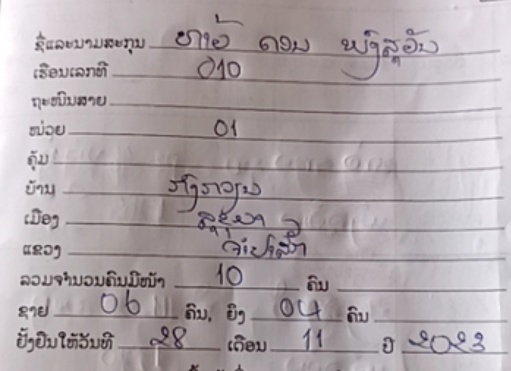 ຊື່ແລະນາມສະກຸນ ທ້າວ ດອນ ພົງສຸວັນ
ເຮືອນເລກທີ 010
ຖະໜົນສາຍ
ໜ່ວຍ 01
ຄຸ້ມ
ບ້ານ
ເມືອງ ສຸຂຸມາ
ແຂວງ ຈຳປາສັກ
ລວມຈຳນວນຄົນມີໜ້າ 10 ຄົນ
ຊາຍ 06 ຄົນ, ຍິງ 04 ຄົນ
ຢັ້ງຢືນໃຫ້ວັນທີ 28 ເດືອນ 11 ປີ 2023